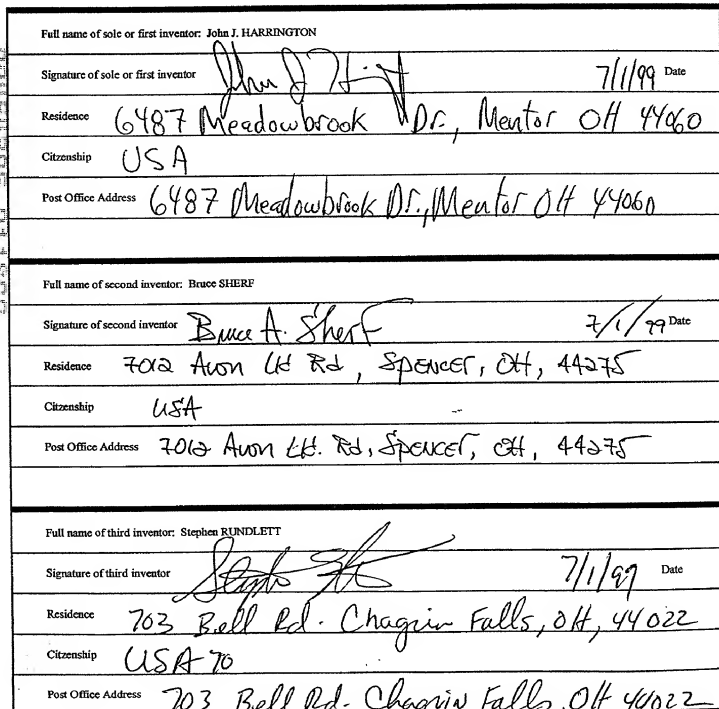 Full name of sole or first inventor: John J. HARRINGTON
Signature of sole or first inventor John J 7/1/99 Date
Residence 6487 Meadowbrook Dr., Mentor OH 44060
Citzenship USA
Post Office Address 6487 Meadowbrook Dr., Mentor OH 44060
Full name of second inventor: Bruce SHERF
Signature of second inventor Bruce A. Sherf 7/1/99 Date
Residence 7012 Avon Rd, SPENCER, OH, 44275
Citzenship USA
Post Office Address 7012 Avon Rd, SPENCER, OH, 44275
Full name of third inventor: Stephen RUNDLETT
Signature of third inventor 7/1/99 Date
Residence 703 Bell Rd. Chagrin Falls, OH, 44022
Citzenship USA
Post Office Address 703 Bell Rd. Chagrin Falls, OH 44022